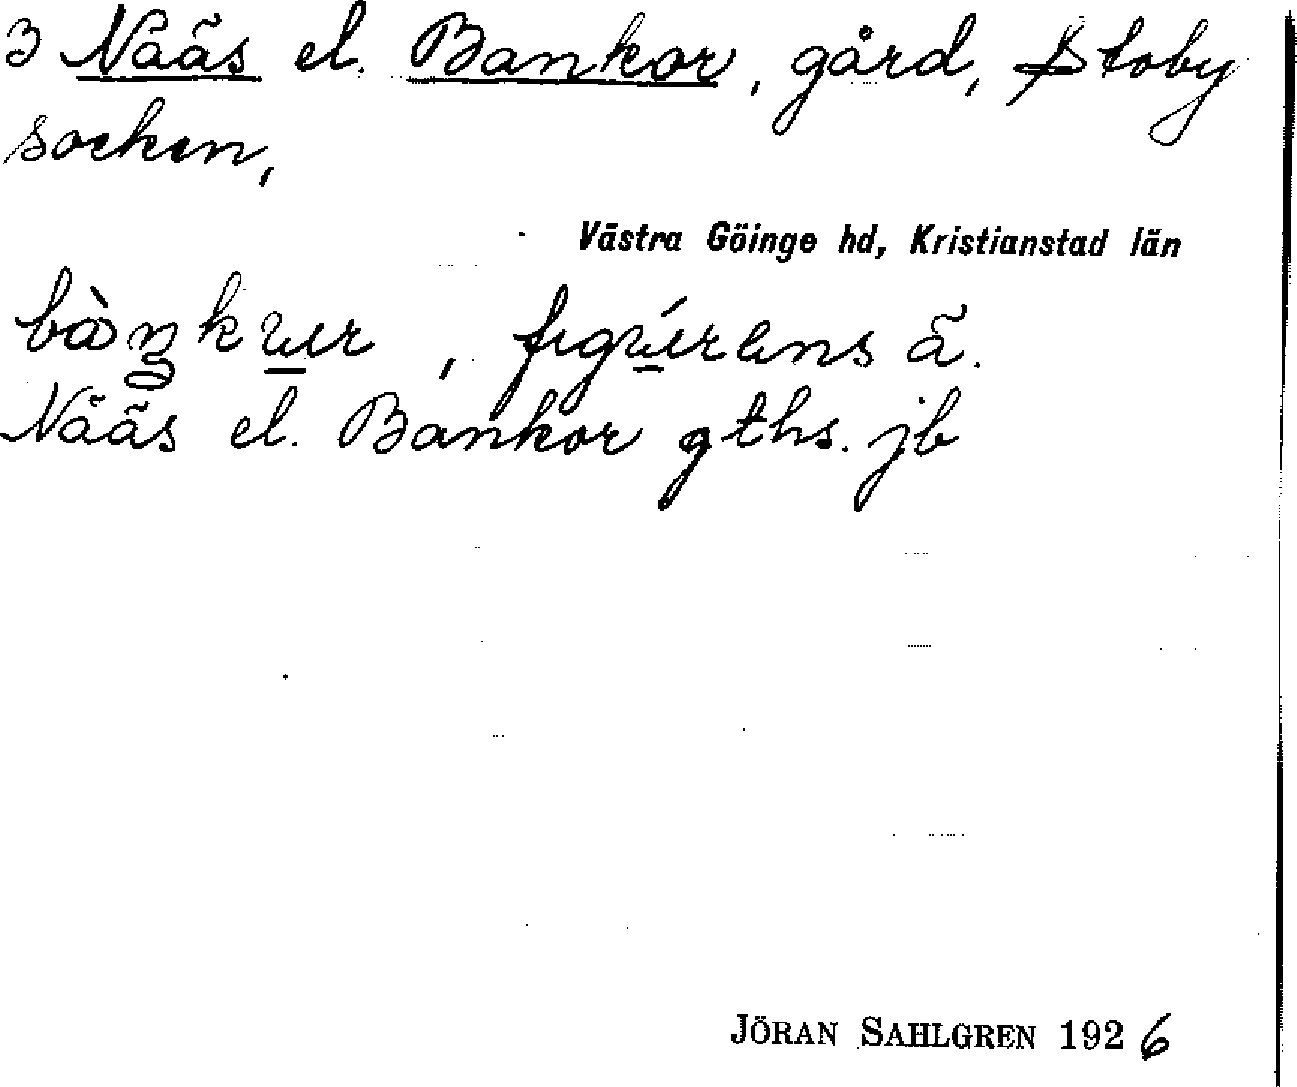 3 Nääs el. Bankor, gård, Stoby
socken,
Västra Göinge hd, Kristianstad län
bàŋkuɪr, fɪgúɪrens ä.
Nääs el. Bankor gths. jb
JÖRAN SAHLGREN 1926